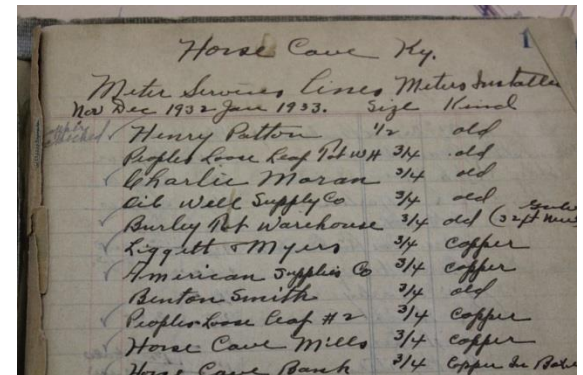 1
Horse Cave Ky.
Meter Services Lines Meters Installe
Nov Dec 1932 Jan 1933. Size Kind
Henry Patton 1/2 old
Peoples Loose Leaf Tob WH 3/4 old
Charlie Moran 3/4 old
Oil Well Supply Co 3/4 old
Burley Tob Warehouse 3/4 old (32ft
Liggett & Myers 3/4 copper
American Supplies Co 3/4 copper
Benton Smith 3/4 old
Peoples Loose Leaf #2 3/4 copper
Horse Cave Mills 3/4 copper
Horse Cave Bank 3/4 Copper In